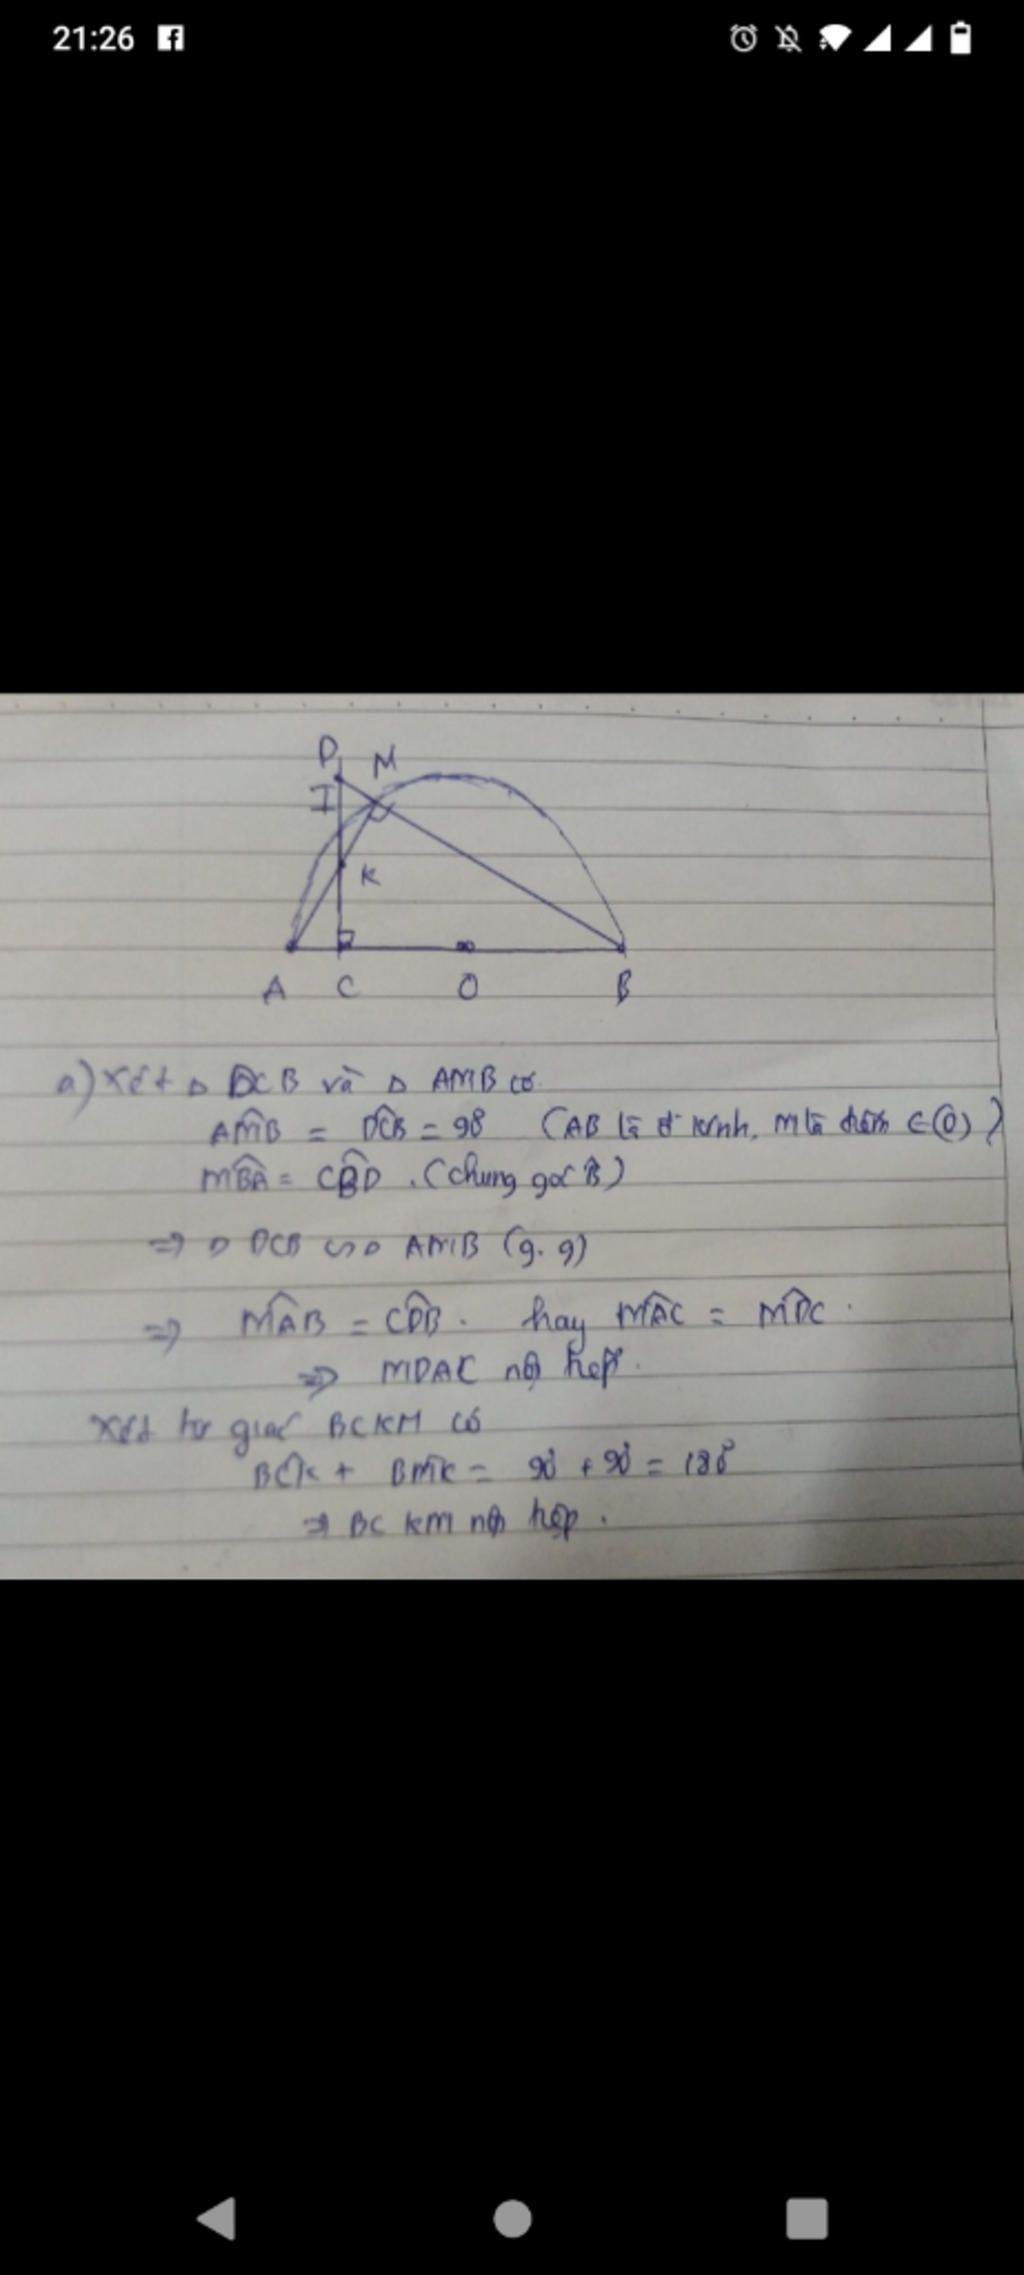 21:26
D M
I
K
A C O B
a) Xét Δ DCB và Δ AMB có
AM̂B = DĈB = 90° (AB là đ kính, M là điểm ∈ (O))
MB̂A = CB̂D . (chung góc B̂)
=> Δ DCB ∽ Δ AMB (g.g)
=> MÂB = CD̂B . hay MÂC = MD̂C .
=> MDAC nội tiếp .
Xét tứ giác BCKM có
BĈK + BM̂K = 90° + 90° = 180°
=> BCKM nội tiếp .